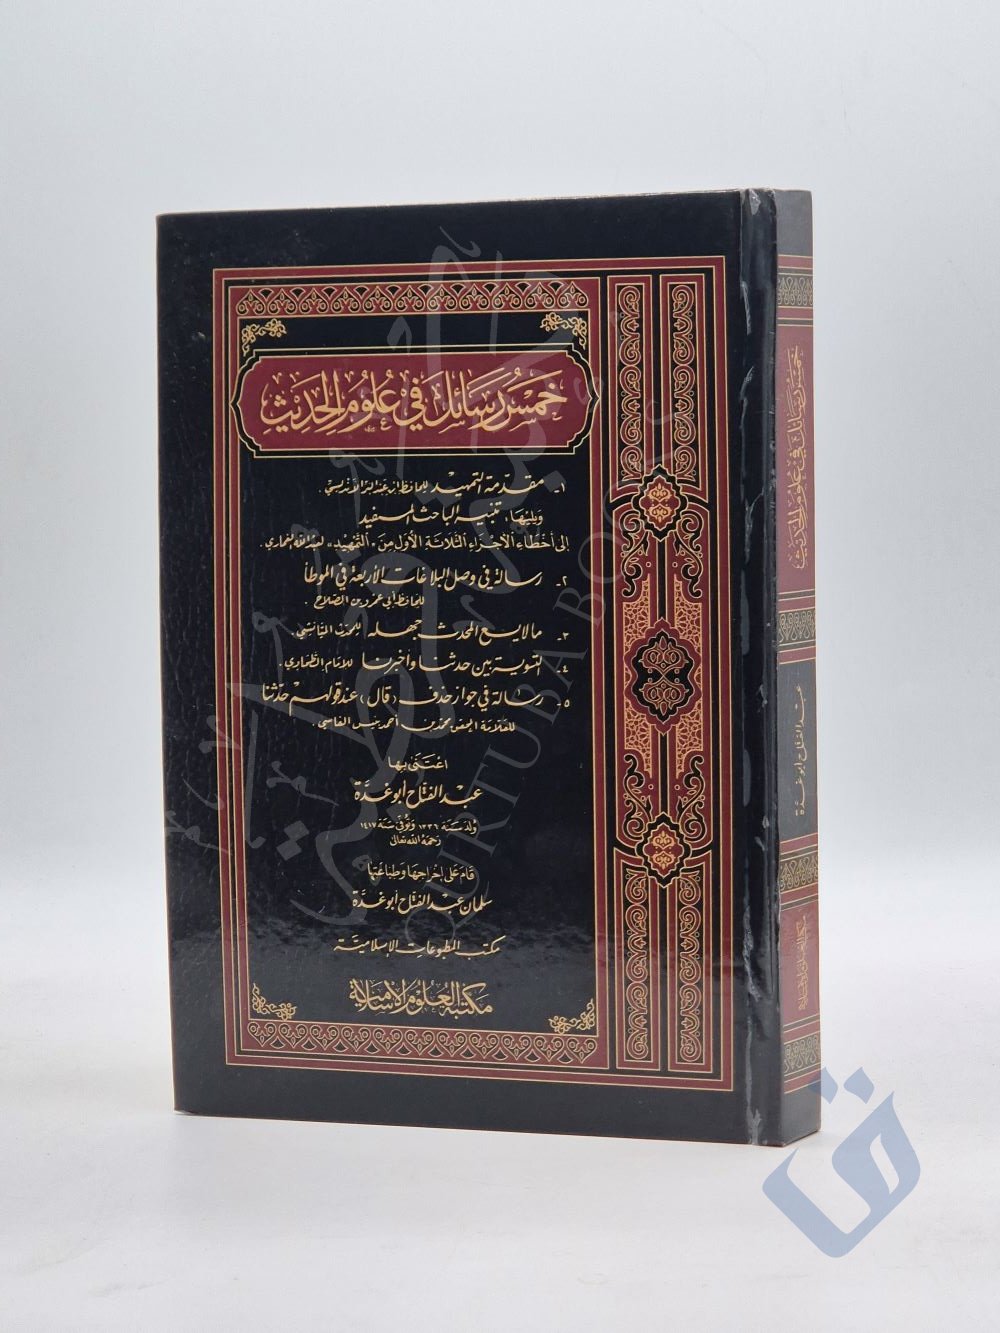 خمس رسائل في علوم الحديث
١- مقدمة التمهيد للحافظ ابن عبد البر الأندلسي .
ويليها : تنبيه الباحث المستفيد
إلى أخطاء الأجزاء الثلاثة الأول من «التمهيد» لعبد الله الغماري .
٢- رسالة في وصل البلاغات الأربعة في الموطأ
للحافظ أبي عمرو بن الصلاح .
٣- ما لا يسع المحدث جهله للمحدث الميانشي .
٤- التسوية بين حدثنا وأخبرنا للإمام الطحاوي .
٥- رسالة في جواز حذف (قال) عند قولهم حدثنا
للعلامة المحقق محمد بن أحمد بنيس الفاسي .
اعتنى بها
عبد الفتاح أبو غدة
ولد سنة ١٣٣٦ وتوفي سنة ١٤١٧
رحمه الله تعالى
قام على إخراجها وطباعتها
سلمان عبد الفتاح أبو غدة
مكتب المطبوعات الإسلامية
مكتبة العلوم الإسلامية
خمس رسائل في علوم الحديث
عبد الفتاح أبو غدة
مكتبة العلوم الإسلامية
QURTUBA BOOKS